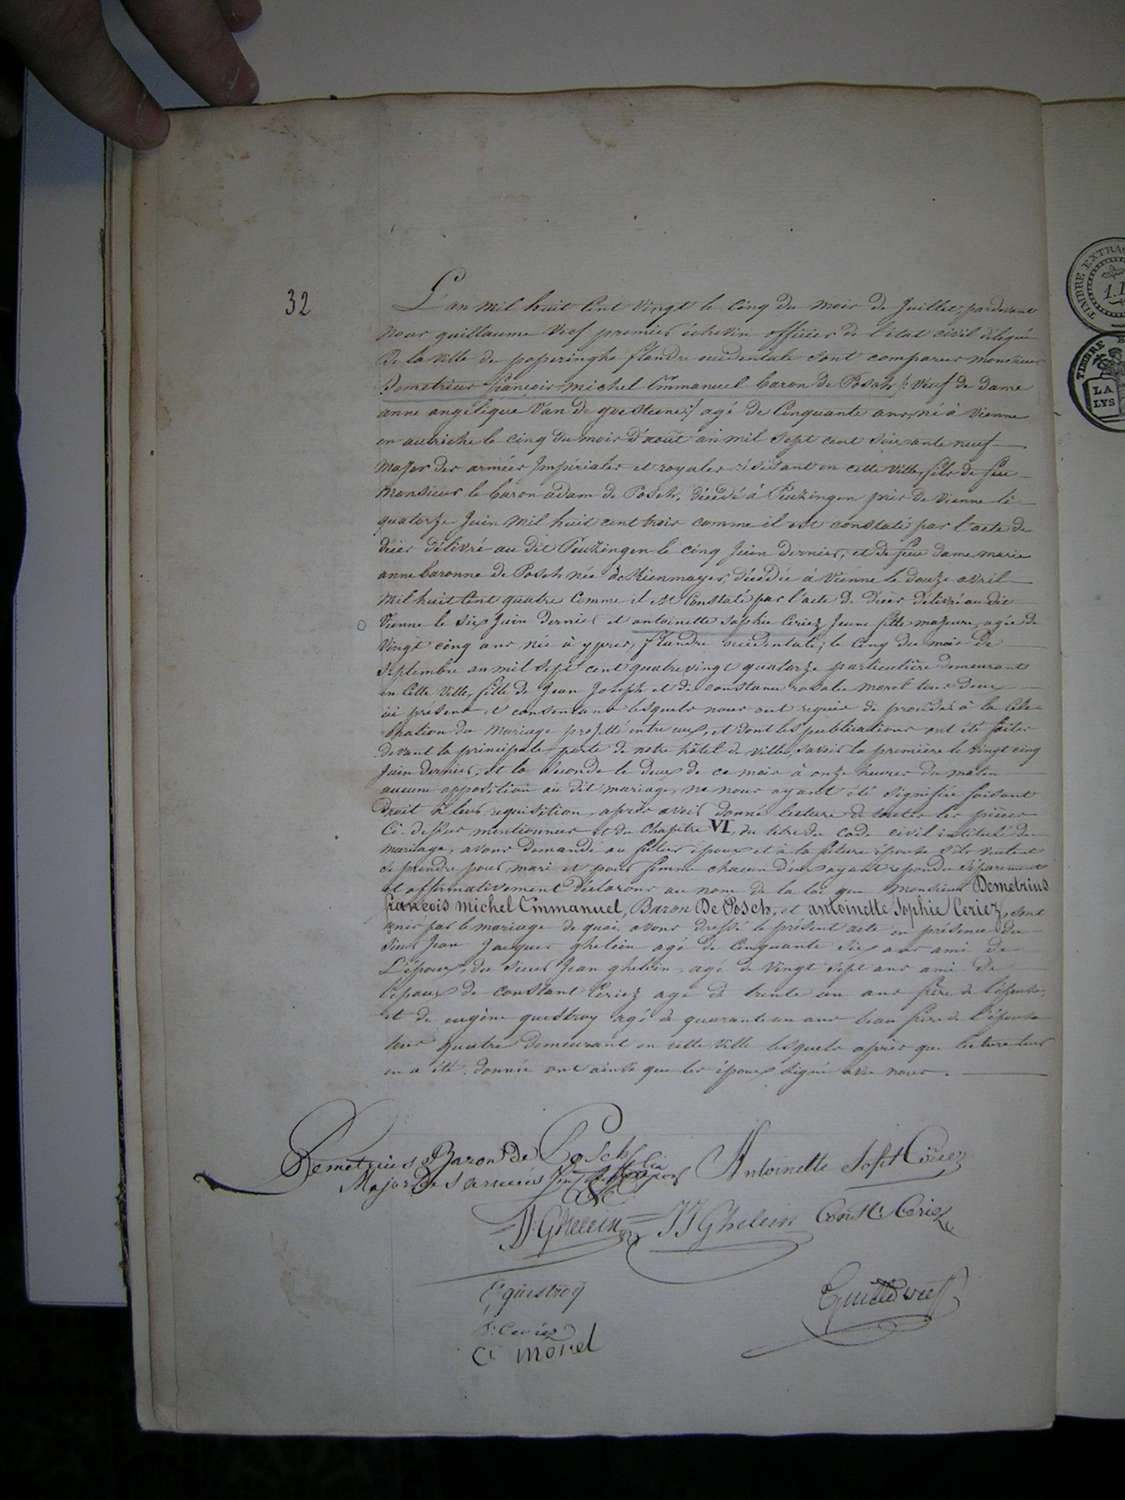 32
L'an mil huit Cent Vingt le Cinq du mois de Juillet, pardevant
nous guillaume Vref premier échevin officier de l'état civil délégué
de la ville de poperinghe flandre occidentale sont comparus monsieur
Demetrius françois michel Emmanuel baron de Posch /: Veuf de dame
anne angelique Van de :/ agé de Cinquante ans, né à Vienne
en autriche le cinq du mois d'août an mil sept cent soixante neuf
major des armées Impériales et royales résidant en cette Ville, fils de feu
monsieur le baron adam de Posch, décédé à près de Vienne le
quatorze Juin Mil huit cent trois comme il est constaté par l'acte de
décès délivré au dit le cinq Juin dernier, et de feue dame marie
anne baronne de Posch née de décédée à Vienne le douze avril
mil huit Cent quatre Comme il est Constaté par l'acte de décès délivré au dit
Vienne le six Juin dernier et antoinette Sophie Ceriez Jeune fille majeure, agée de
Vingt cinq ans née à ypres, flandre occidentale, le Cinq du mois de
Septembre an mil sept cent quatre vingt quatorze particulière demeurant
en Cette Ville, fille de Jean Joseph et de constance rosalie morel tous deux
ici présent et consentans lesquels nous ont requis de procéder à la célé-
bration du mariage projetté entre eux, et dont les publications ont été faites
devant la principale porte de notre hôtel de Ville, savoir la première le vingt cinq
Juin dernier, et la seconde le deux de ce mois à onze heures du matin
aucune opposition au dit mariage ne nous ayant été signifiée faisant
droit à leur requisition, après avoir donné lecture de toutes les pièces
Ci-dessus mentionnées et du Chapitre VI, du titre du code civil intitulé du
mariage, avons demandé au futur époux et à la future épouse s'ils veulent
se prendre pour mari et pour femme chacun d'eux ayant répondu séparement
et affirmativement déclarons au nom de la loi que Monsieur Demetrius
françois michel Emmanuel, Baron De Posch, et antoinette Sophie Ceriez, sont
unis par le mariage de quoi avons dressé le présent acte en présence du
sieur Jean Jacques ghelein agé de Cinquante six ans ami de
L'époux, du sieur Jean ghelein, agé de Vingt sept ans ami de
l'époux de constant Ceriez agé de trente un ans frère de l'épouse,
et de eugène questroy agé de quarante un ans beau frère de l'épouse
tous quatre demeurant en cette ville lesquels après que lecture leur
en a été donnée ont ainsi que les époux signé avec nous.
Demetrius Baron de Posch Antoinette Soph Ceriez
Major des armées
Ghelein JJ Ghelein Const Ceriez
E questroy
Guille Vref
J: Ceriez
C: morel
TIMBRE EXTRA
TIMBRE
LA
LYS